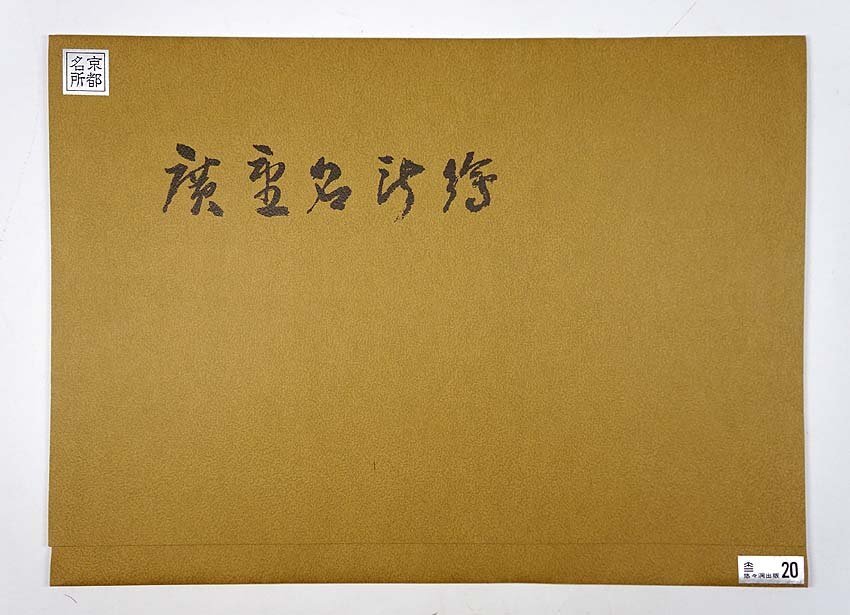 京都
名所
廣重名所繪
悠々洞出版 20